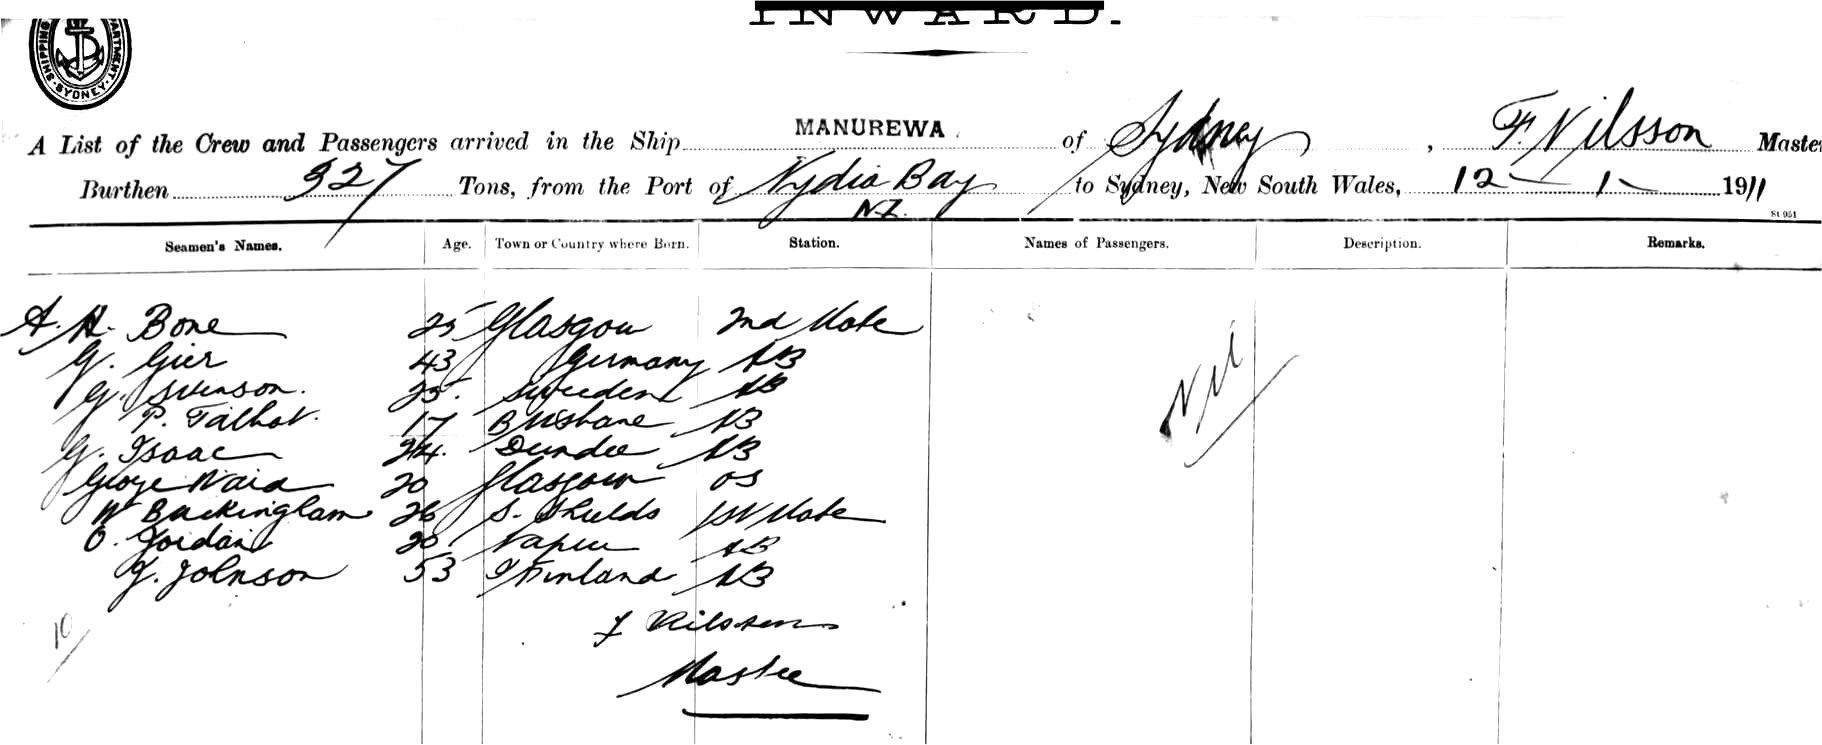 INWARD.
SHIPPING DEPARTMENT SYDNEY
A List of the Crew and Passengers arrived in the Ship MANUREWA of Sydney, F. Nilsson Master
Burthen 327 Tons, from the Port of Nydia Bay to Sydney, New South Wales, 12 - 1 - 1911
NZ.
St 951
Seamen's Names. Age. Town or Country where Born. Station. Names of Passengers. Description. Remarks.
A. H. Bone 25 Glasgow 2nd Mate
G. Gier 43 Germany AB
G. Svenson. 25. Sweeden AB
P. Talbot. 17 Brisbane AB
G. Isaac 24. Dundee AB
George Naid 20 Glasgow OS
W Buckingham 26 S. Shields 1st Mate
O. Jordan 20 Napier AB
J. Johnson 53 Finland AB
Nil
10
F Nilsson
Master